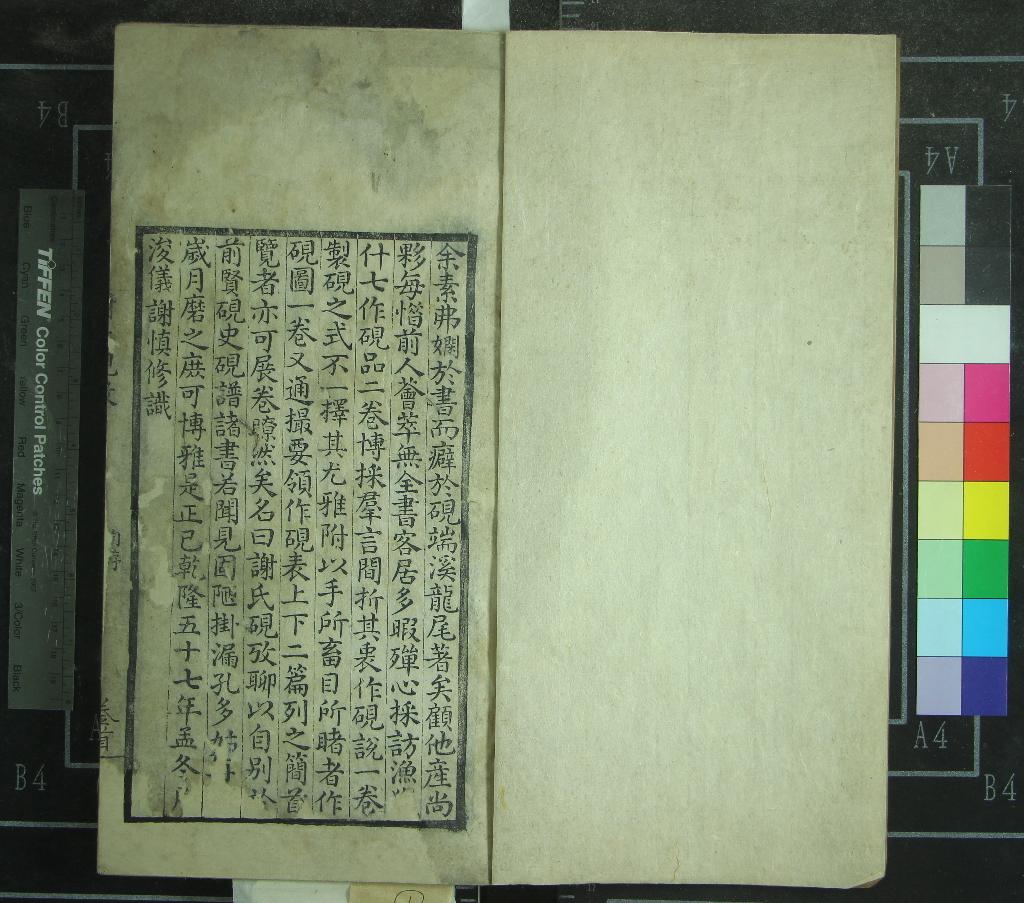 余素弗嫻於書而癖於硯端溪龍尾著矣顧他產尚
夥每惜前人薈萃無全書客居多暇殫心採訪漁
什七作硯品二卷博採羣言間折其衷作硯說一卷
製硯之式不一擇其尤雅附以手所畜目所睹者作
硯圖一卷又通撮要領作硯表上下二篇列之簡首
覽者亦可展卷瞭然矣名曰謝氏硯攷聊以自別於
前賢硯史硯譜諸書若聞見固陋掛漏孔多姑
歲月磨之庶可博雅是正已乾隆五十七年孟冬月
浚儀謝慎修識
自序
卷首
一
B4
A4
B4
A4
A4
B4
TIFFEN Color Control Patches
Blue
Cyan
Green
Yellow
Red
Magenta
White
3/Color
Black